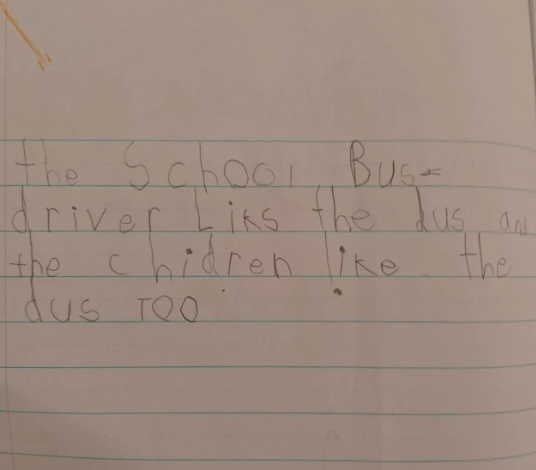 the School Bus-
driver Liks the dus and
the chidren like the
dus TOO